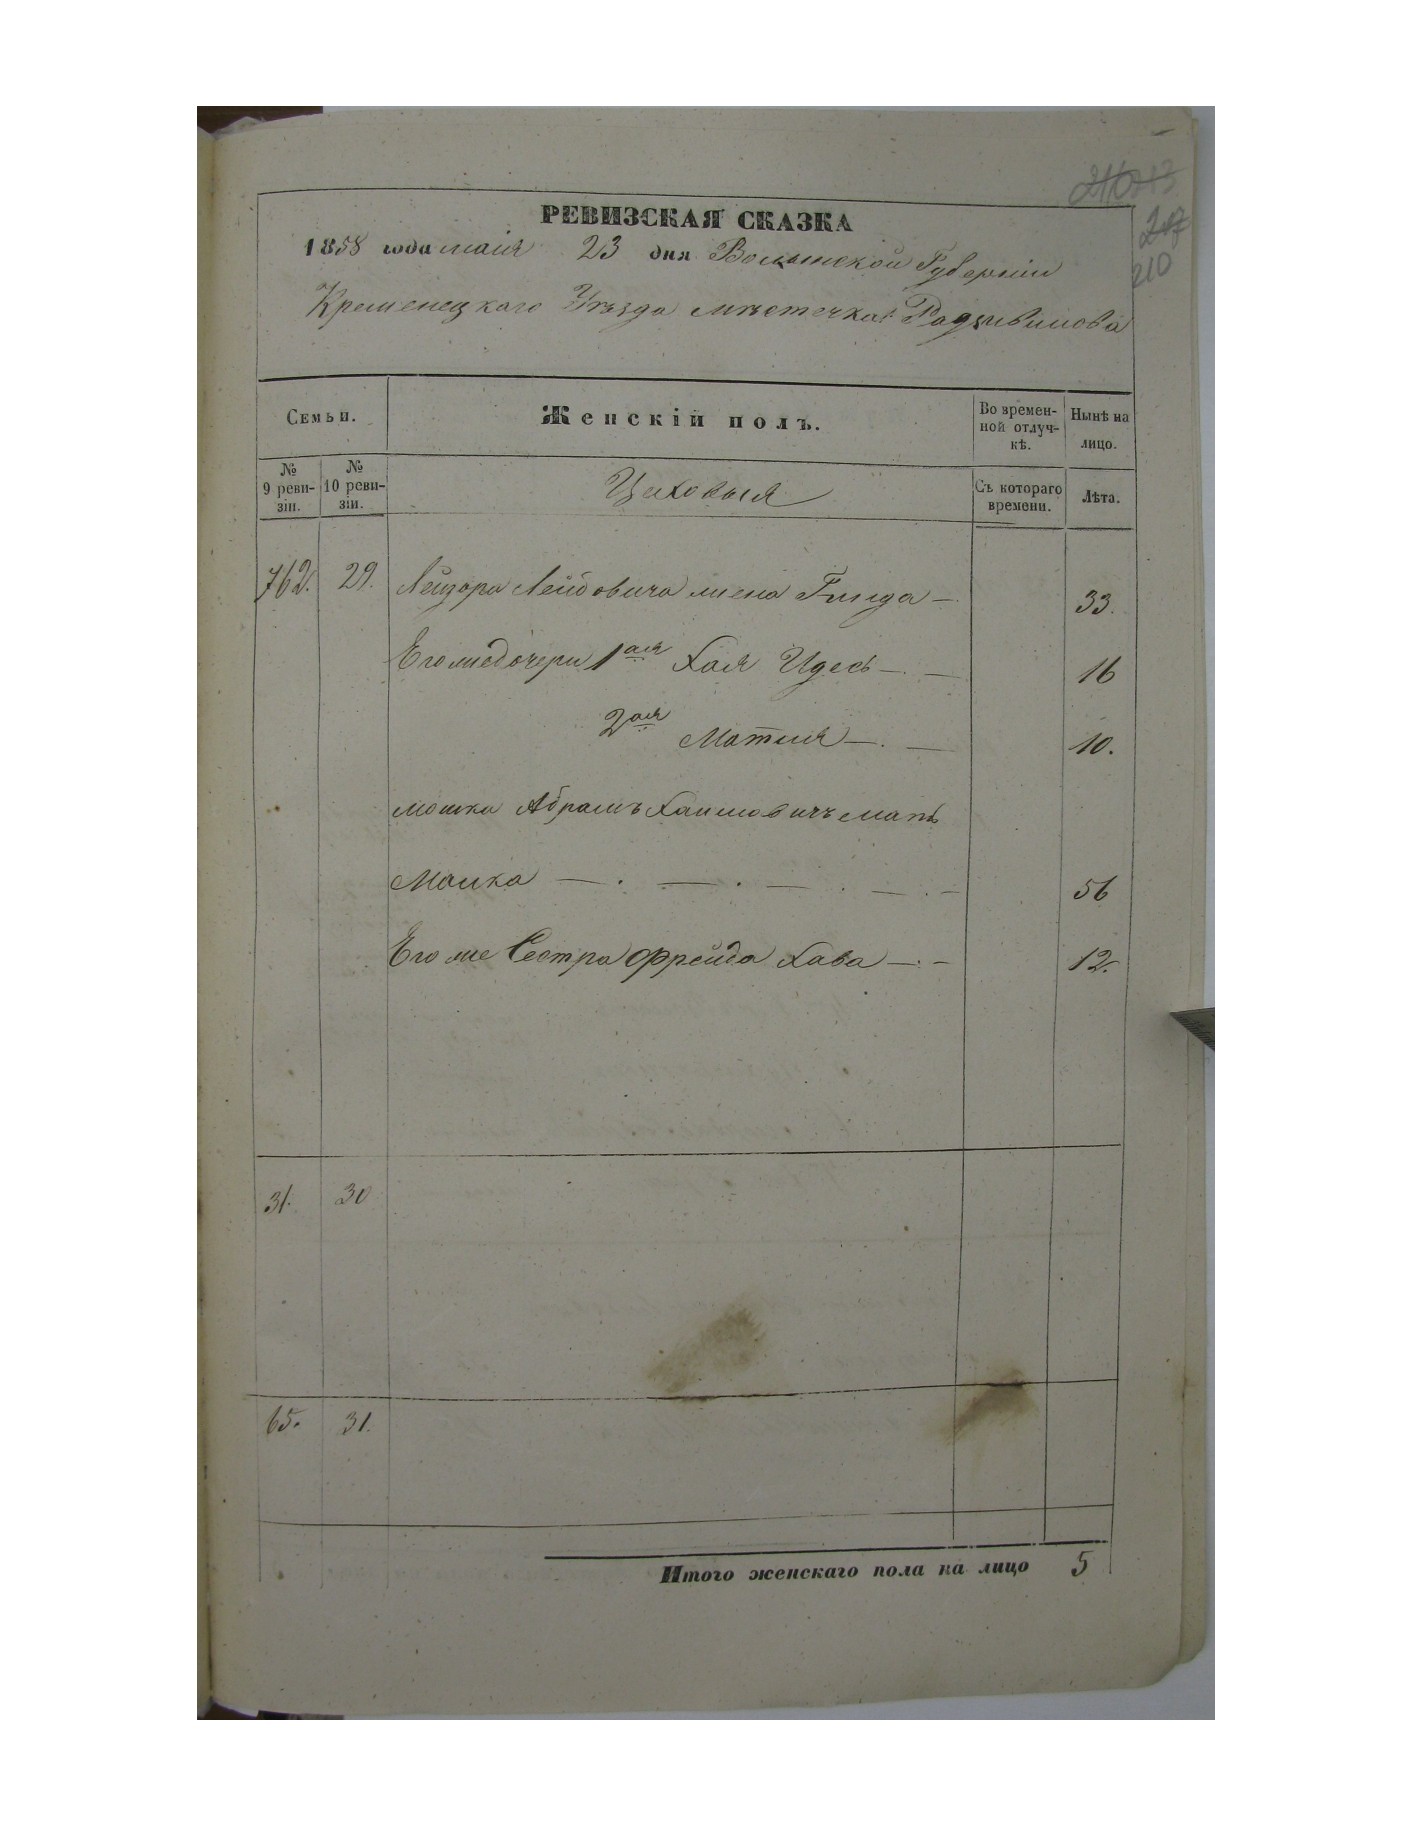 210
РЕВИЗСКАЯ СКАЗКА
1858 года маія 23 дня Волынской Губерніи
Кременецкаго Уѣзда мѣстечка Радзивилова
Семьи.
Женскій полъ.
Во времен-
ной отлуч-
кѣ.
Нынѣ на
лицо.
№
9 реви-
зіи.
№
10 реви-
зіи.
Цеховыя
Съ котораго
времени.
Лѣта.
762. 29. Лейзора Лейбовича жена Гинда 33.
Его же дочери 1ая Хая Идесь 16
2ая Матля 10.
Мошка Абрамъ Хаимовичъ мать
Малка 56
Его же Сестра Фрейда Хава 12.
31. 30
65. 31.
Итого женскаго пола на лицо 5